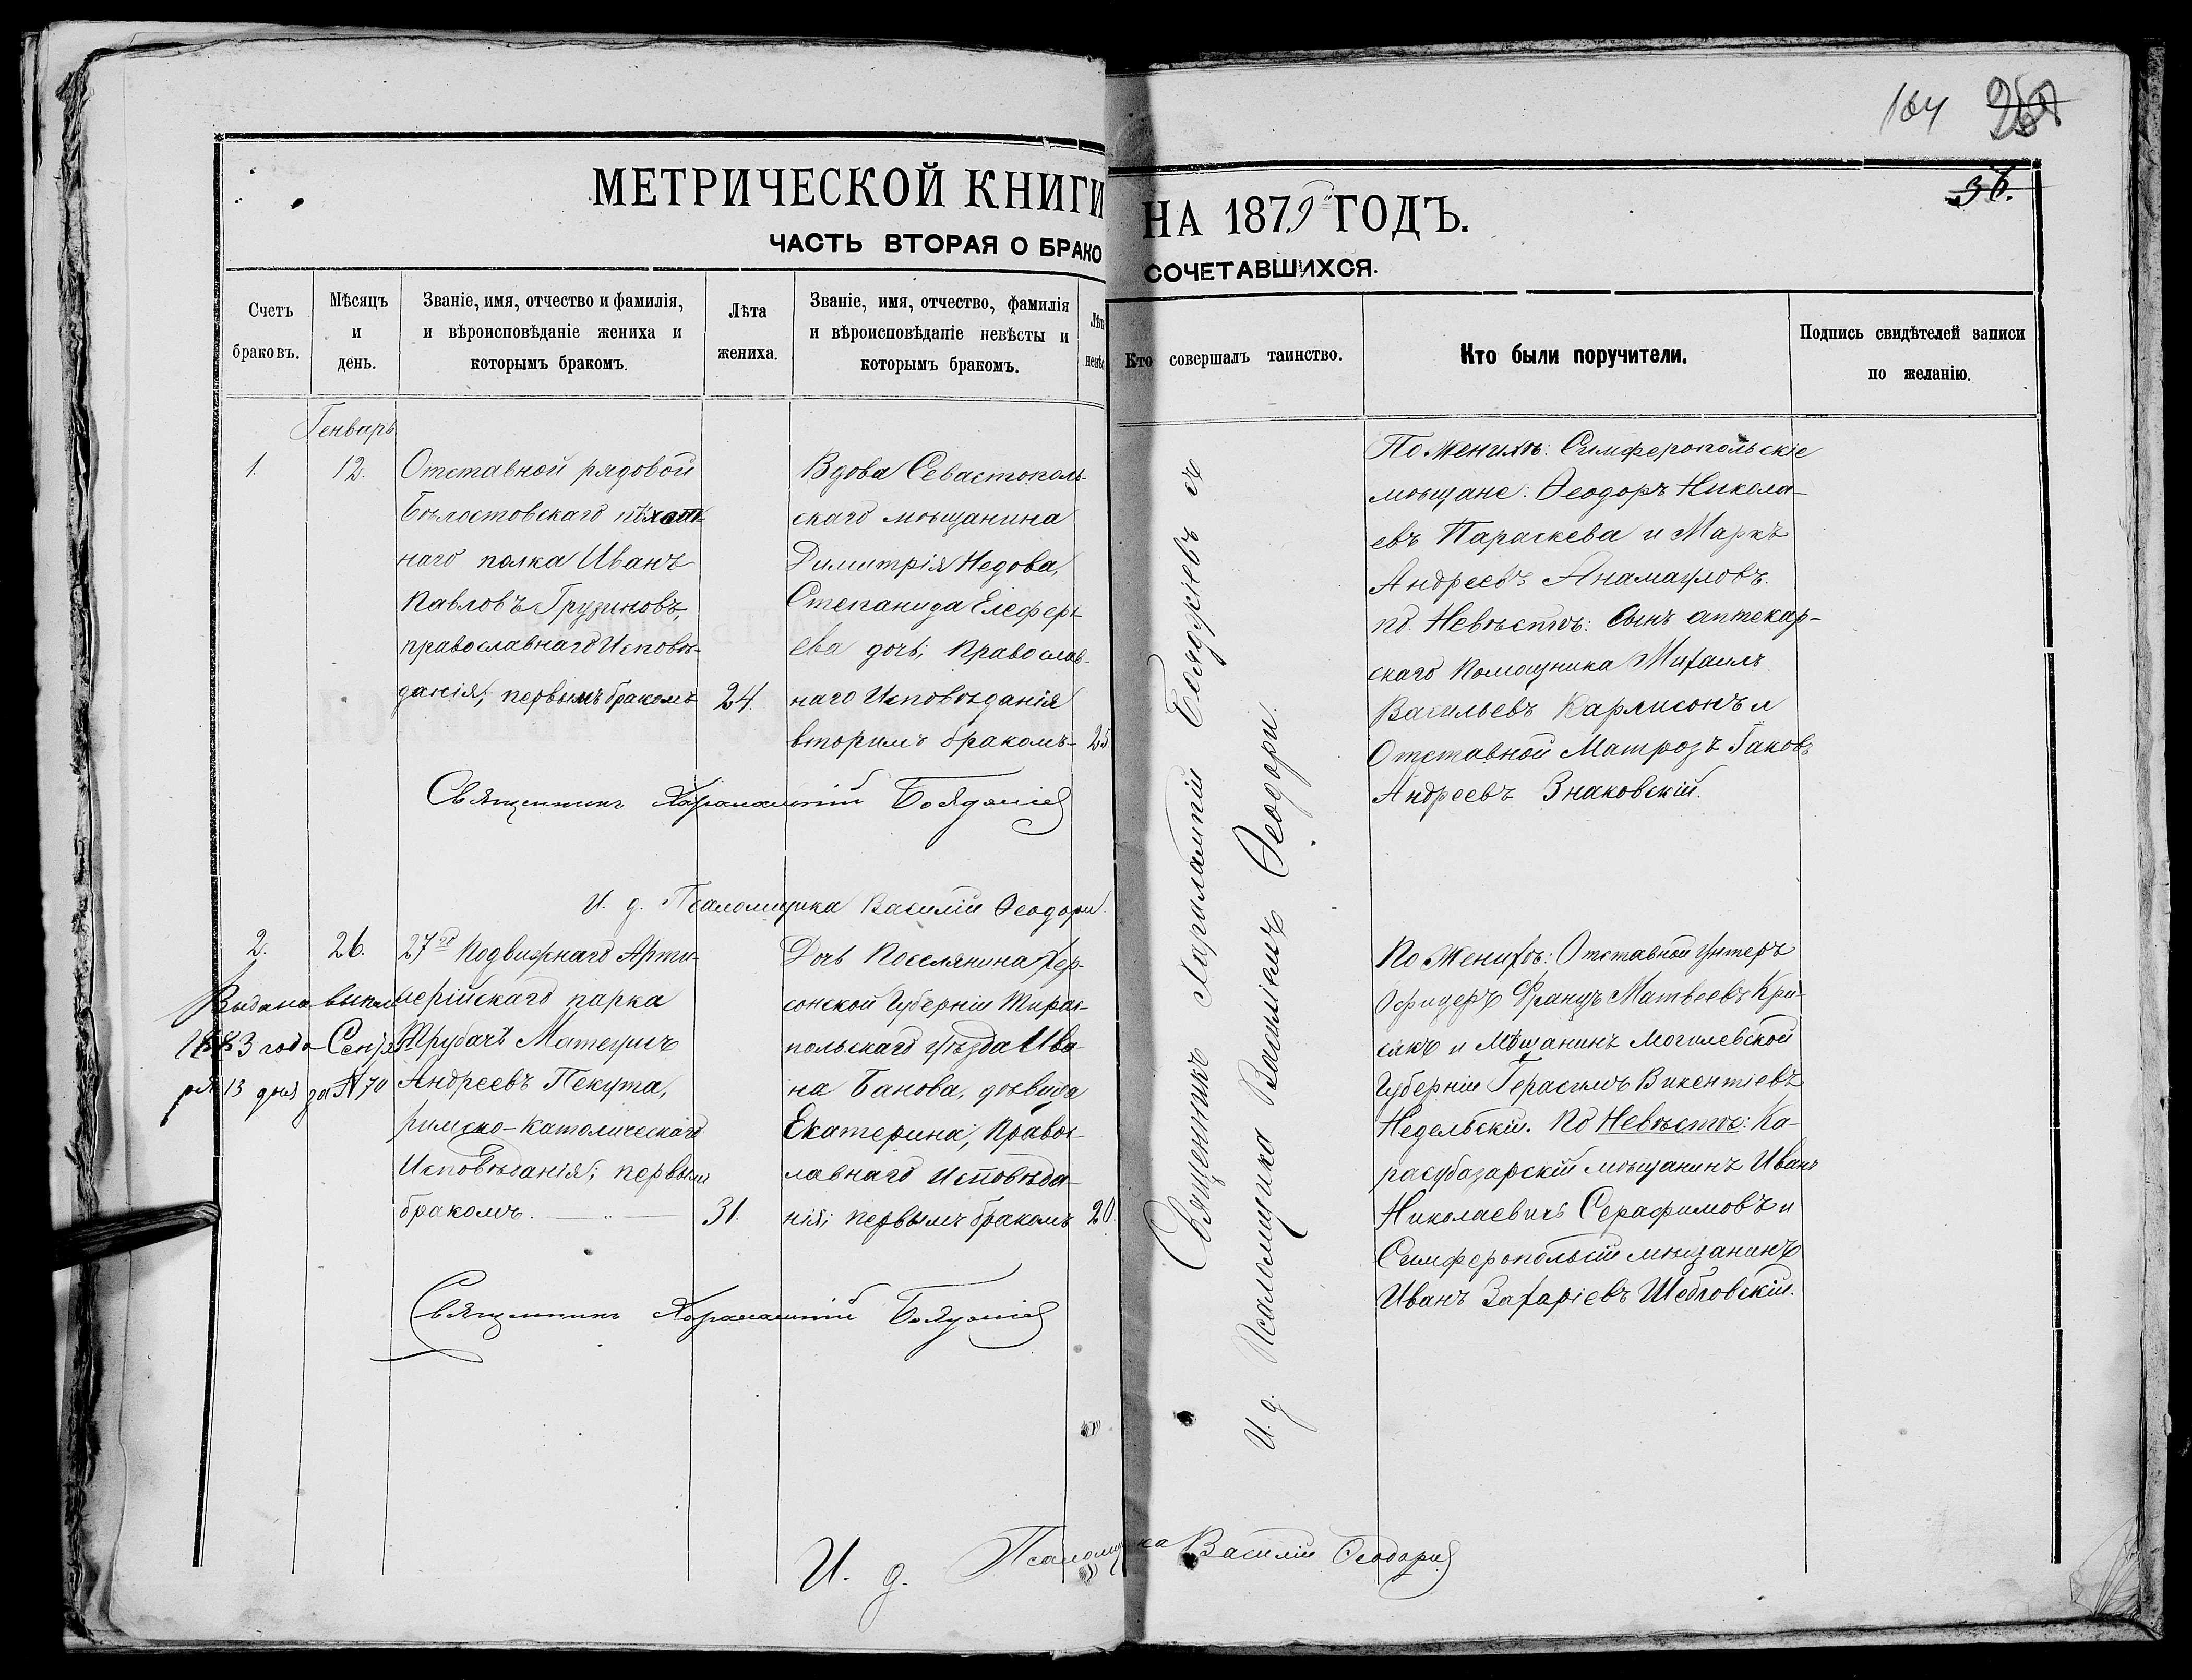 164
36.
МЕТРИЧЕСКОЙ КНИГИ НА 1879й ГОДЪ.
ЧАСТЬ ВТОРАЯ О БРАКОСОЧЕТАВШИХСЯ.
Счетъ
браковъ.
Мѣсяцъ
и
день.
Званіе, имя, отчество и фамилія,
и вѣроисповѣданіе жениха и
которымъ бракомъ.
Лѣта
жениха.
Званіе, имя, отчество, фамилія
и вѣроисповѣданіе невѣсты и
которымъ бракомъ.
Лѣта
невѣс
Кто совершалъ таинство.
Кто были поручители.
Подпись свидѣтелей записи
по желанію.
Генварь
1.
12.
Отставной рядовой
Бѣлостокскаго пѣхот-
наго полка Иванъ
Павловъ Грузиновъ,
православнаго Исповѣ-
данія; первымъ бракомъ
24.
Вдова Севастополь-
скаго мѣщанина
Димитрія Недова,
Степанида Елеферь-
ева дочь; Православ-
наго Исповѣданія
вторымъ бракомъ-
25.
Священникъ Харалампій
И. д. Псаломщика Василій Ѳеодори.
Священникъ Харалампій
И. д. Псаломщика Василій Ѳеодори.
По Женихѣ: Симферопольскіе
мѣщане: Ѳеодоръ Никола-
евъ Параскева и Маркъ
Андреевъ
по Невѣстѣ: Сынъ аптекар-
скаго Помощника Михаилъ
Васильевъ Карлисонъ и
Отставной Матрозъ Іаковъ
Андреевъ Знаковскій.
2.
26.
Выдана выпись
1883 года Сентяб
ря 13 дня за № 70
27й Подвижнаго Арти-
лерійскаго парка
Трубачъ Матеушъ
Андреевъ Пекута,
римско-католическаго
Исповѣданія; первымъ
бракомъ.
31.
Дочь Поселянина Хер-
сонской Губерніи Тирас-
польскаго уѣзда Ива-
на Банова, дѣвица
Екатерина; Правос-
лавнаго Исповѣда-
нія; первымъ бракомъ
20.
По Женихѣ: Отставной Унтеръ
Офицеръ Францъ Матвеевъ Кри-
сякъ и Мѣщанинъ Могилевской
Губерніи Герасимъ Викентіевъ
Недельскій. По Невѣстѣ: Ка-
расубазарскій мѣщанинъ Иванъ
Николаевичъ Серафимовъ и
Симферопольскій мѣщанинъ
Иванъ Захаріевъ Шебловскій.
Священникъ Харалампій
И. д. Псаломщика Василій Ѳеодори